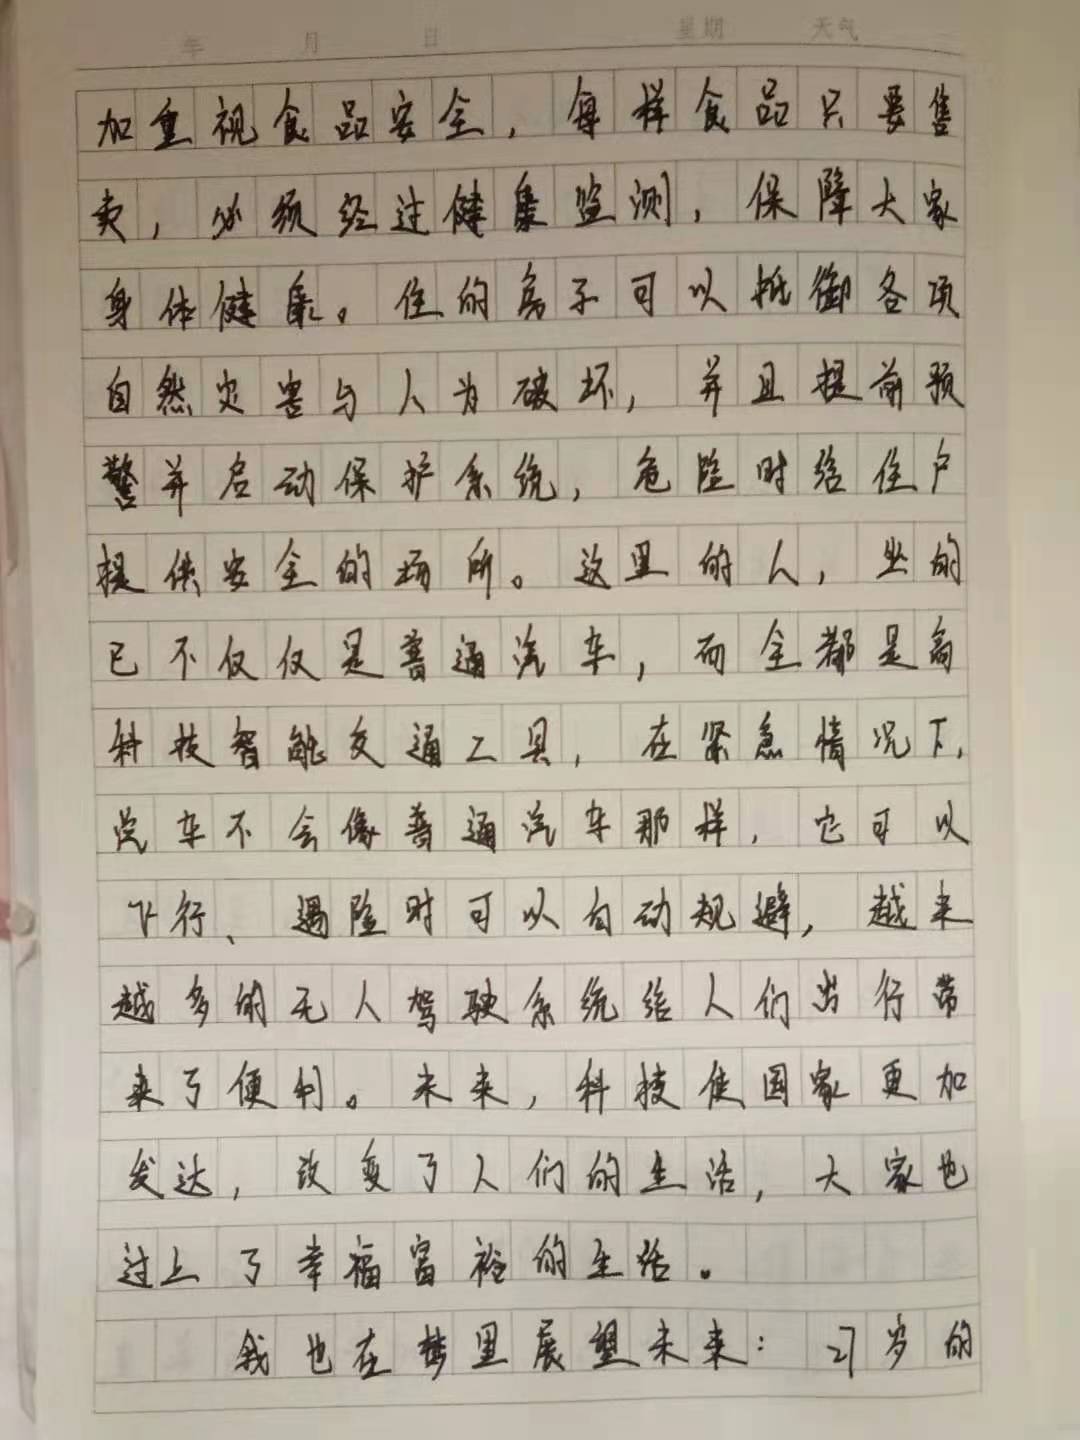 年 月 日 星期 天气
加重视食品安全，每样食品只要售
卖，必须经过健康监测，保障大家
身体健康。住的房子可以抵御各项
自然灾害与人为破坏，并且提前预
警并启动保护系统，危险时给住户
提供安全的场所。这里的人，坐的
已不仅仅是普通汽车，而全都是高
科技智能交通工具，在紧急情况下，
汽车不会像普通汽车那样，它可以
飞行、遇险时可以自动规避，越来
越多的无人驾驶系统给人们出行带
来了便利。未来，科技使国家更加
发达，改变了人们的生活，大家也
过上了幸福富裕的生活。
我也在梦里展望未来：27岁的